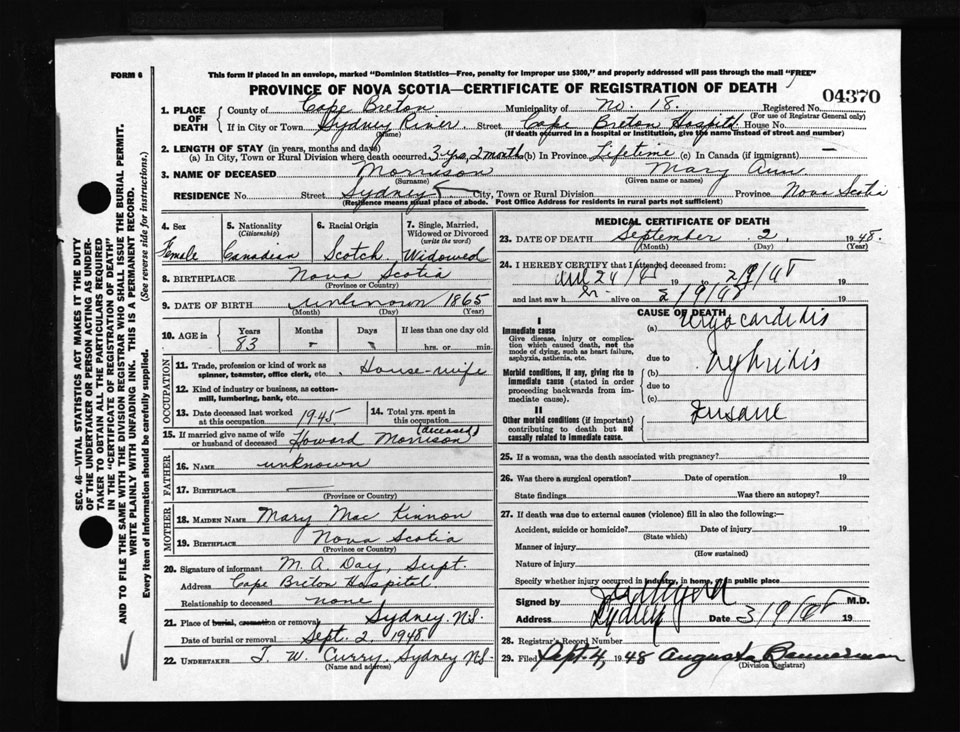 FORM 6
This form if placed in an envelope, marked "Dominion Statistics—Free, penalty for improper use $300," and properly addressed will pass through the mail "FREE"
PROVINCE OF NOVA SCOTIA—CERTIFICATE OF REGISTRATION OF DEATH
04370
1. PLACE OF DEATH
County of Cape Breton Municipality of No. 18. Registered No.
(For use of Registrar General only)
If in City or Town Sydney River. Street Cape Breton Hospital. House No.
(Name) (If death occurred in a hospital or institution, give the name instead of street and number)
2. LENGTH OF STAY (in years, months and days)
(a) In City, Town or Rural Division where death occurred 3 yrs, 2 months (b) In Province Lifetime (c) In Canada (if immigrant) —
3. NAME OF DECEASED Morrison Mary Ann
(Surname) (Given name or names)
RESIDENCE No. Street Sydney City, Town or Rural Division Province Nova Scotia
(Residence means usual place of abode. Post Office Address for residents in rural parts not sufficient)
4. Sex
Female
5. Nationality
(Citizenship)
Canadian
6. Racial Origin
Scotch
7. Single, Married, Widowed or Divorced
(write the word)
Widowed
8. BIRTHPLACE Nova Scotia
(Province or Country)
9. DATE OF BIRTH unknown 1865
(Month) (Day) (Year)
10. AGE in Years Months Days If less than one day old
83 " " hrs. or min.
OCCUPATION
11. Trade, profession or kind of work as
spinner, teamster, office clerk, etc. House-wife
12. Kind of industry or business, as cotton-
mill, lumbering, bank, etc.
13. Date deceased last worked
at this occupation 1945
14. Total yrs. spent in
this occupation
15. If married give name of wife
or husband of deceased Howard Morrison (deceased)
FATHER
16. NAME unknown
17. BIRTHPLACE —
(Province or Country)
MOTHER
18. MAIDEN NAME Mary Mac Kinnon
19. BIRTHPLACE Nova Scotia
(Province or Country)
20. Signature of informant M. A. Day, Supt.
Address Cape Breton Hospital.
Relationship to deceased none
21. Place of burial, cremation or removal Sydney, N.S.
Date of burial or removal Sept. 2, 1948
22. UNDERTAKER T. W. Curry, Sydney N.S.
(Name and address)
MEDICAL CERTIFICATE OF DEATH
23. DATE OF DEATH September 2, 1948.
(Month) (Day) (Year)
24. I HEREBY CERTIFY that I attended deceased from:
19 to 19
and last saw h alive on 2/9/48 19
CAUSE OF DEATH
I
Immediate cause
Give disease, injury or complication which caused death, not the mode of dying, such as heart failure, asphyxia, asthenia, etc.
(a) Myocarditis
due to
Morbid conditions, if any, giving rise to immediate cause (stated in order proceeding backwards from immediate cause).
(b) Nephritis
due to
(c)
II
Other morbid conditions (if important) contributing to death but not causally related to immediate cause.
Insane
25. If a woman, was the death associated with pregnancy?
26. Was there a surgical operation? Date of operation 19
State findings Was there an autopsy?
27. If death was due to external causes (violence) fill in also the following:—
Accident, suicide or homicide? Date of injury 19
(State which)
Manner of injury
(How sustained)
Nature of injury
Specify whether injury occurred in industry, in home, or in public place
Signed by M.D.
Sydney Date 3/9/48 19
28. Registrar's Record Number
29. Filed Sept. 4, 1948 Augusta Bannerman
(Division Registrar)
SEC. 46—VITAL STATISTICS ACT MAKES IT THE DUTY
OF THE UNDERTAKER OR PERSON ACTING AS UNDER-
TAKER TO OBTAIN ALL THE PARTICULARS REQUIRED
IN THE "CERTIFICATE OF REGISTRATION OF DEATH"
AND TO FILE THE SAME WITH THE DIVISION REGISTRAR WHO SHALL ISSUE THE BURIAL PERMIT.
WRITE PLAINLY WITH UNFADING INK. THIS IS A PERMANENT RECORD.
Every item of information should be carefully supplied. (See reverse side for instructions.)